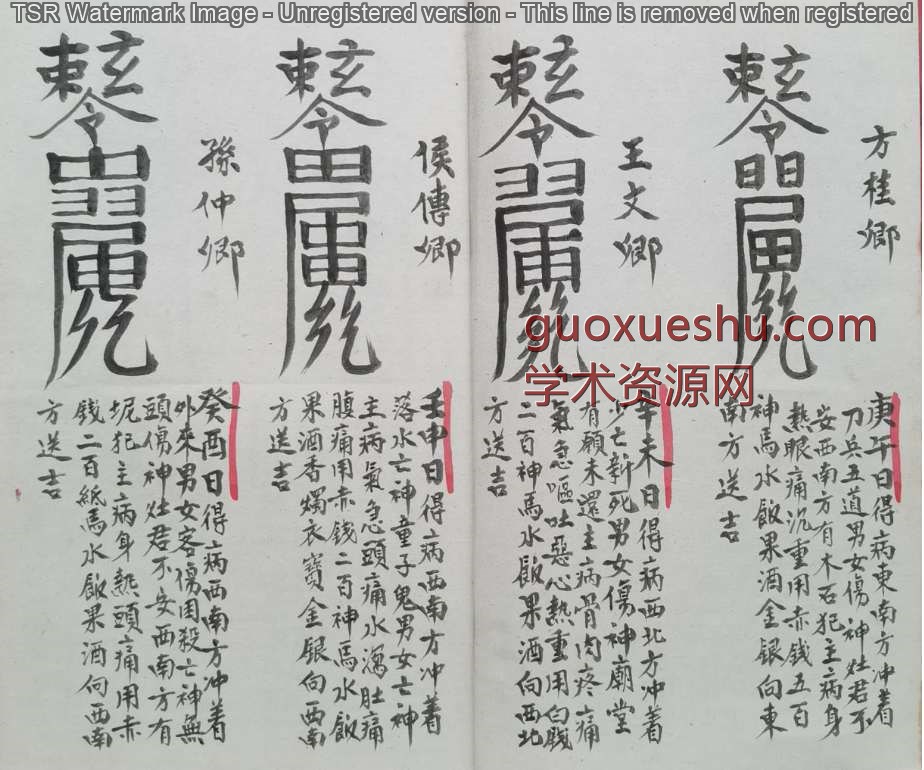 TSR Watermark Image - Unregistered version - This line is removed when registered
方桂卿
庚午日得病東南方冲着
刀兵五道男女傷神灶君不
安西南方有木石犯主病身
熱眼痛沉重用赤錢五百
神馬水飯果酒金銀向東
南方送吉
王文卿
辛未日得病西北方冲着
少亡新死男女傷神廟堂
有願未還主病骨肉疼痛
氣急嘔吐惡心熱重用白錢
二百神馬水飯果酒向西北
方送吉
侯傳卿
壬申日得病西南方冲着
落水亡神童子鬼男女亡神
主病氣急頭痛水瀉肚痛
腹痛用赤錢二百神馬水飯
果酒香燭衣寶金銀向西南
方送吉
孫仲卿
癸酉日得病西南方冲着
外來男女客傷困殺亡神無
頭傷神灶君不安西南方有
坭犯主病身熱頭痛用赤
錢二百紙馬水飯果酒向西南
方送吉
guoxueshu.com
学术资源网